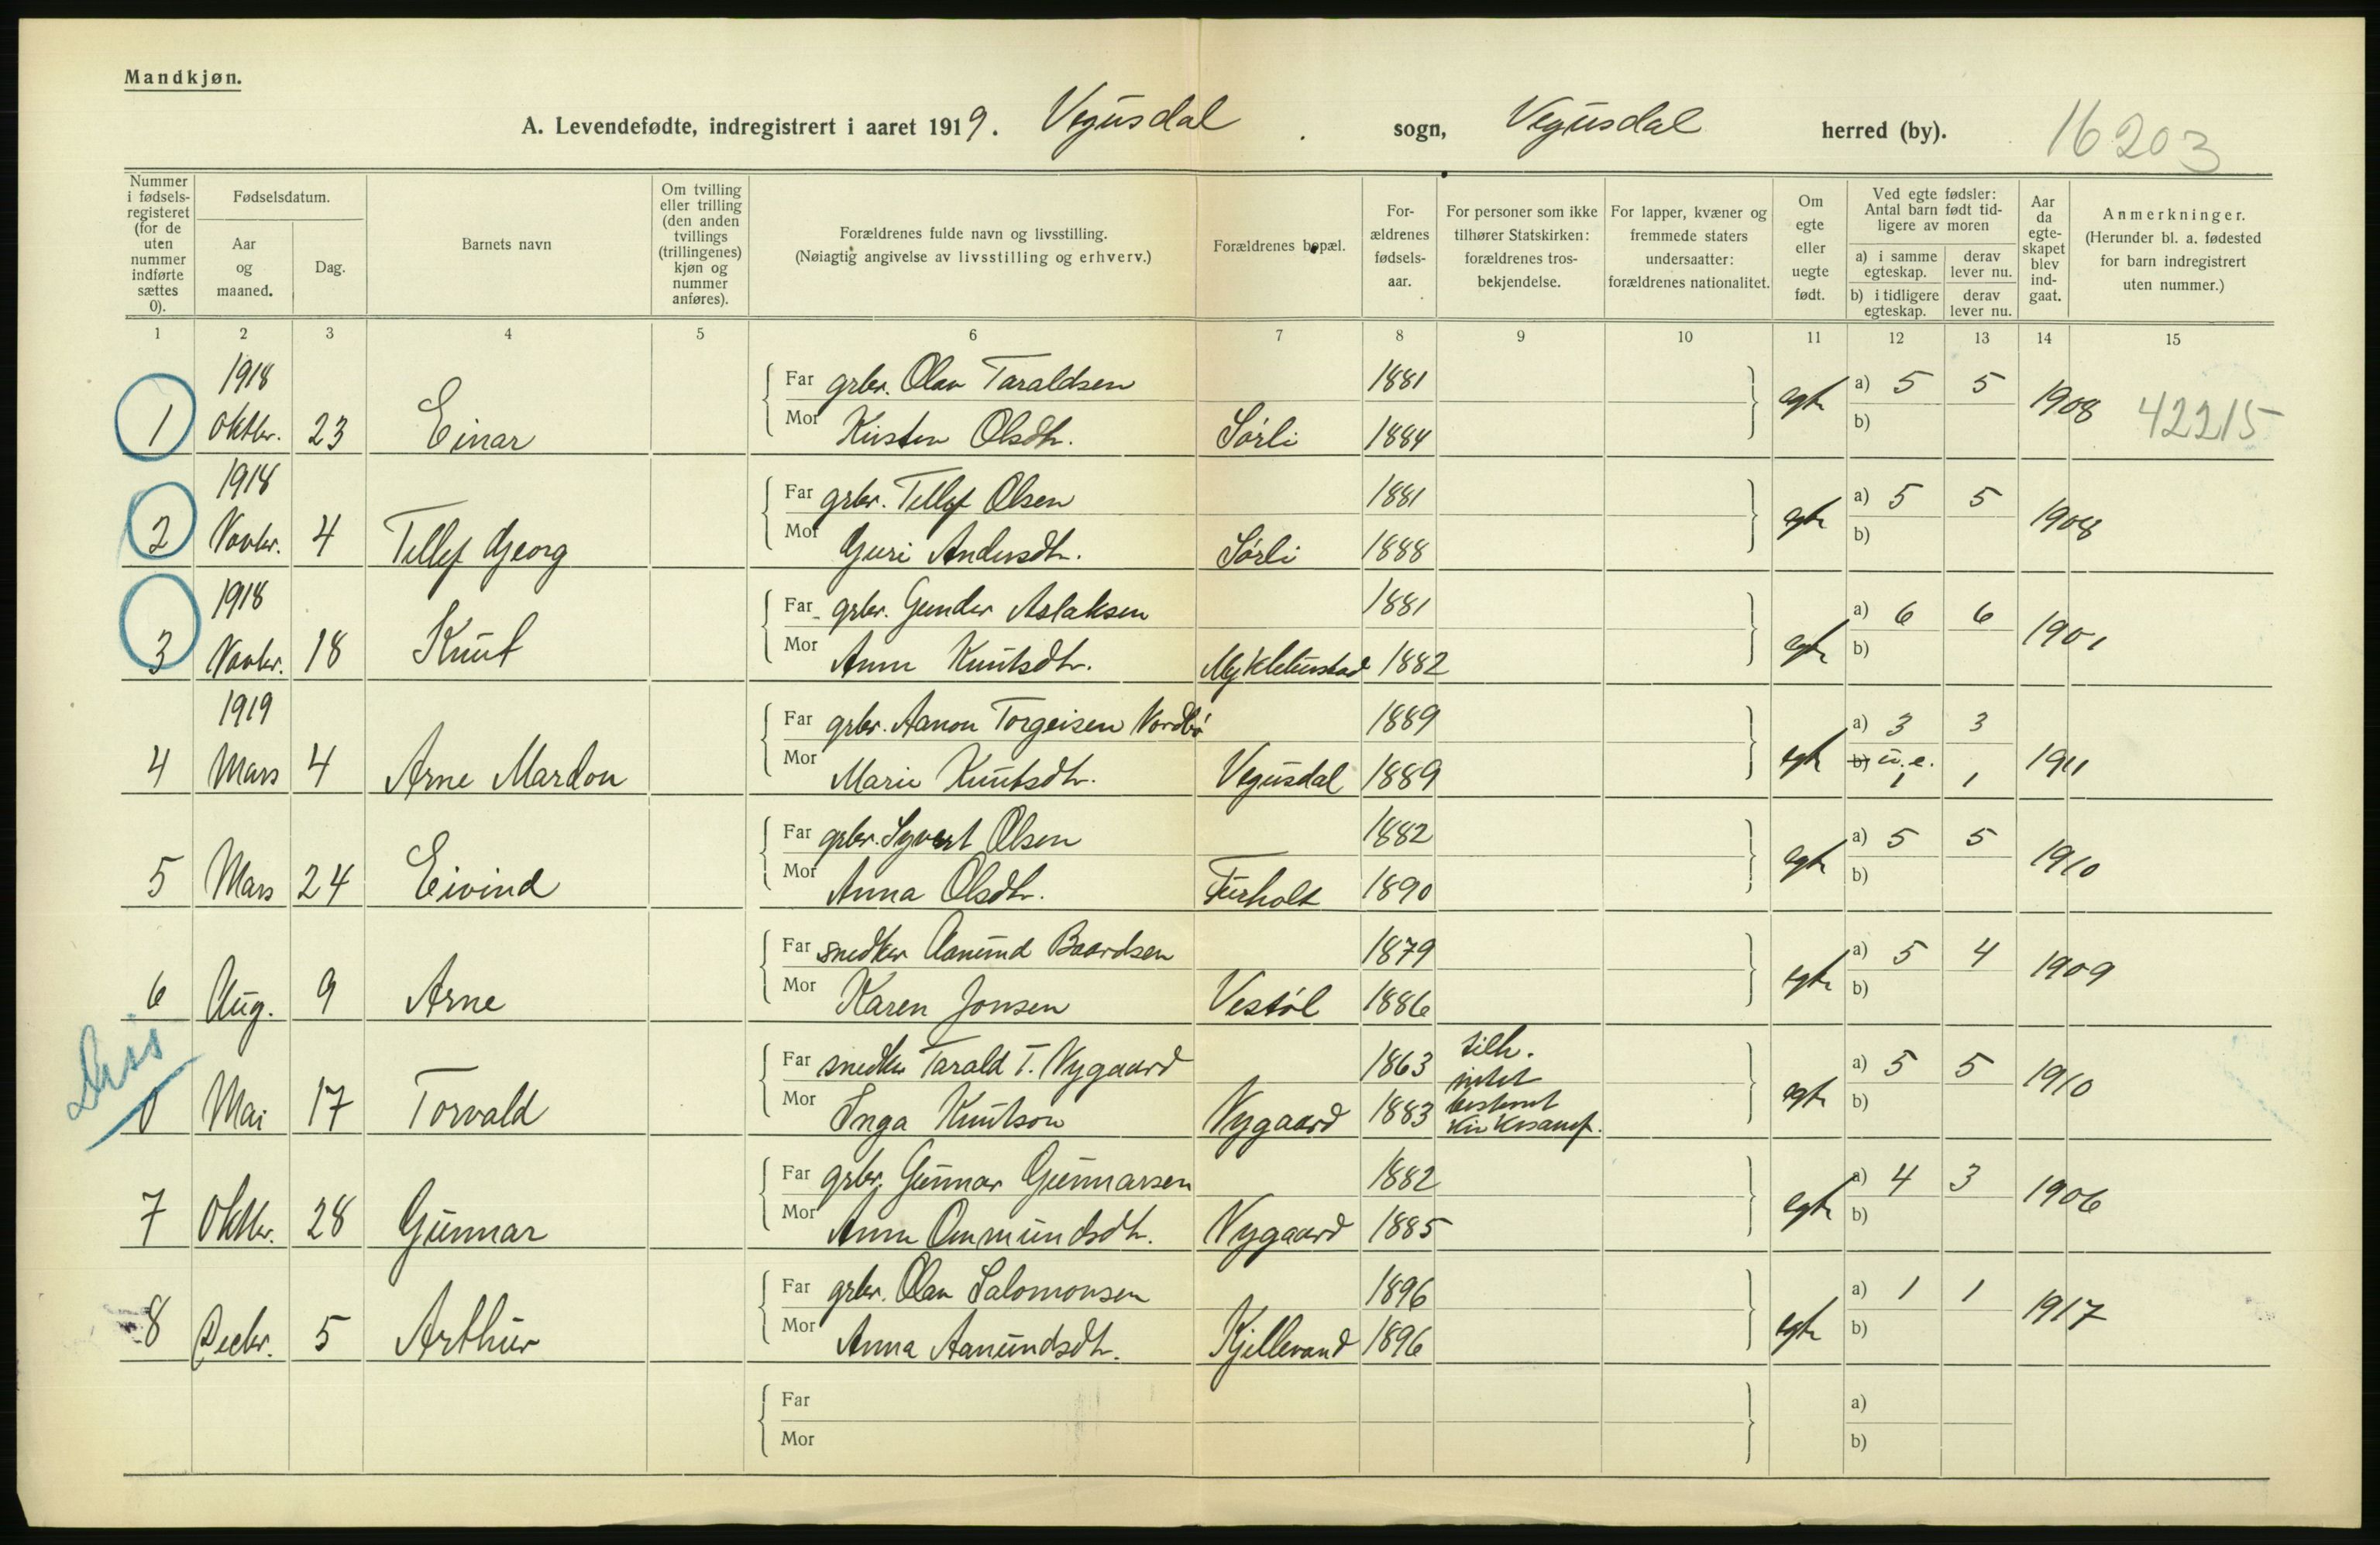 Mandkjøn.
A. Levendefødte, indregistrert i aaret 1919. Vegusdal sogn, Vegusdal herred (by). 16203
Nummer i fødsels-registeret (for de uten nummer indførte sættes 0).
Fødselsdatum.
Aar og maaned.
Dag.
Barnets navn
Om tvilling eller trilling (den anden tvillings (trillingenes) kjøn og nummer anføres).
Forældrenes fulde navn og livsstilling.
(Nøiagtig angivelse av livsstilling og erhverv.)
Forældrenes bopæl.
For-ældrenes fødsels-aar.
For personer som ikke tilhører Statskirken: forældrenes tros-bekjendelse.
For lapper, kvæner og fremmede staters undersaatter: forældrenes nationalitet.
Om egte eller uegte født.
Ved egte fødsler: Antal barn født tid-ligere av moren
a) i samme egteskap. derav lever nu.
b) i tidligere egteskap. derav lever nu.
Aar da egte-skapet blev ind-gaat.
Anmerkninger.
(Herunder bl. a. fødested for barn indregistrert uten nummer.)
1 2 3 4 5 6 7 8 9 10 11 12 13 14 15
1918 Far grbr. Olav Taraldsen 1881 egte a) 5 5 1908
1 Oktbr. 23 Einar Mor Kirsten Olsdtr. Sørli 1884 b) 42215
1918 Far grbr. Tellef Olsen 1881 egte a) 5 5 1908
2 Novbr. 4 Tellef Georg Mor Guri Andersdtr. Sørli 1888 b)
1918 Far grbr. Gunder Aslaksen 1881 egte a) 6 6 1901
3 Novbr. 18 Knut Mor Anne Knutsdtr. Mykleburstad 1882 b)
1919 Far grbr. Aanon Torgeisen Nordbø 1889 egte a) 3 3 1911
4 Mars 4 Arne Mardon Mor Marie Knutsdtr. Vegusdal 1889 b) u.e. 1 1
Far grbr. Syvert Olsen 1882 egte a) 5 5 1910
5 Mars 24 Eivind Mor Anna Olsdtr. Furholt 1890 b)
Far snedker Aanund Baardsen 1879 egte a) 5 4 1909
6 Aug. 9 Arne Mor Karen Jonsen Vestøl 1886 b)
Diss
Far snedker Tarald T. Nygaard 1863 tilh. intet bestemt kirkesamf. egte a) 5 5 1910
0 Mai 17 Torvald Mor Inga Knutson Nygaard 1883 b)
Far grbr. Gunnar Gunnarsen 1882 egte a) 4 3 1906
7 Oktbr. 28 Gunnar Mor Anne Ommundsdtr. Nygaard 1885 b)
Far grbr. Olav Salomonsen 1896 egte a) 1 1 1917
8 Decbr. 5 Arthur Mor Anna Aanundsdtr. Kjillevand 1896 b)
Far a)
Mor b)